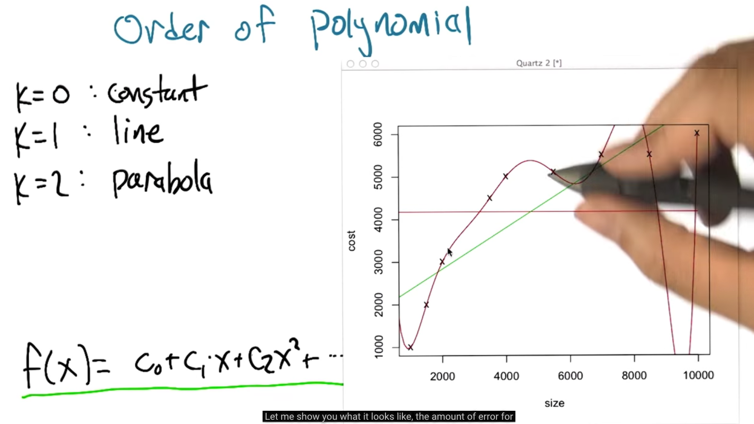 Order of polynomial
k=0 : constant
k=1 : line
k=2 : parabola
f(x)= c₀+c₁x+c₂x²+ ...
Quartz 2 [*]
cost
6000
5000
4000
3000
2000
1000
2000
4000
6000
8000
10000
size
Let me show you what it looks like, the amount of error for